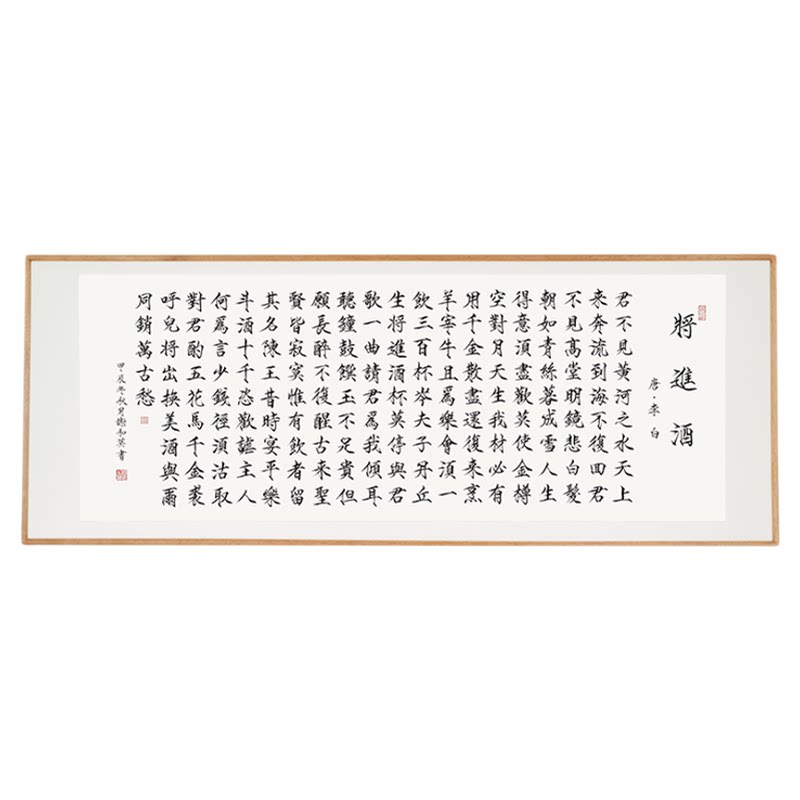 將進酒
唐·李白
君不見黃河之水天上
来奔流到海不復囬君
不見高堂明鏡悲白髮
朝如青絲暮成雪人生
得意須盡歡莫使金樽
空對月天生我材必有
用千金散盡還復来烹
羊宰牛且爲樂會須一
飲三百杯岑夫子丹丘
生將進酒杯莫停與君
歌一曲請君爲我傾耳
聽鐘鼓饌玉不足貴但
願長醉不復醒古来聖
賢皆寂寞惟有飲者留
其名陳王昔時宴平樂
斗酒十千恣歡謔主人
何爲言少錢徑須沽取
對君酌五花馬千金裘
呼兒將出換美酒與爾
同銷萬古愁
甲辰年秋月謝和英書